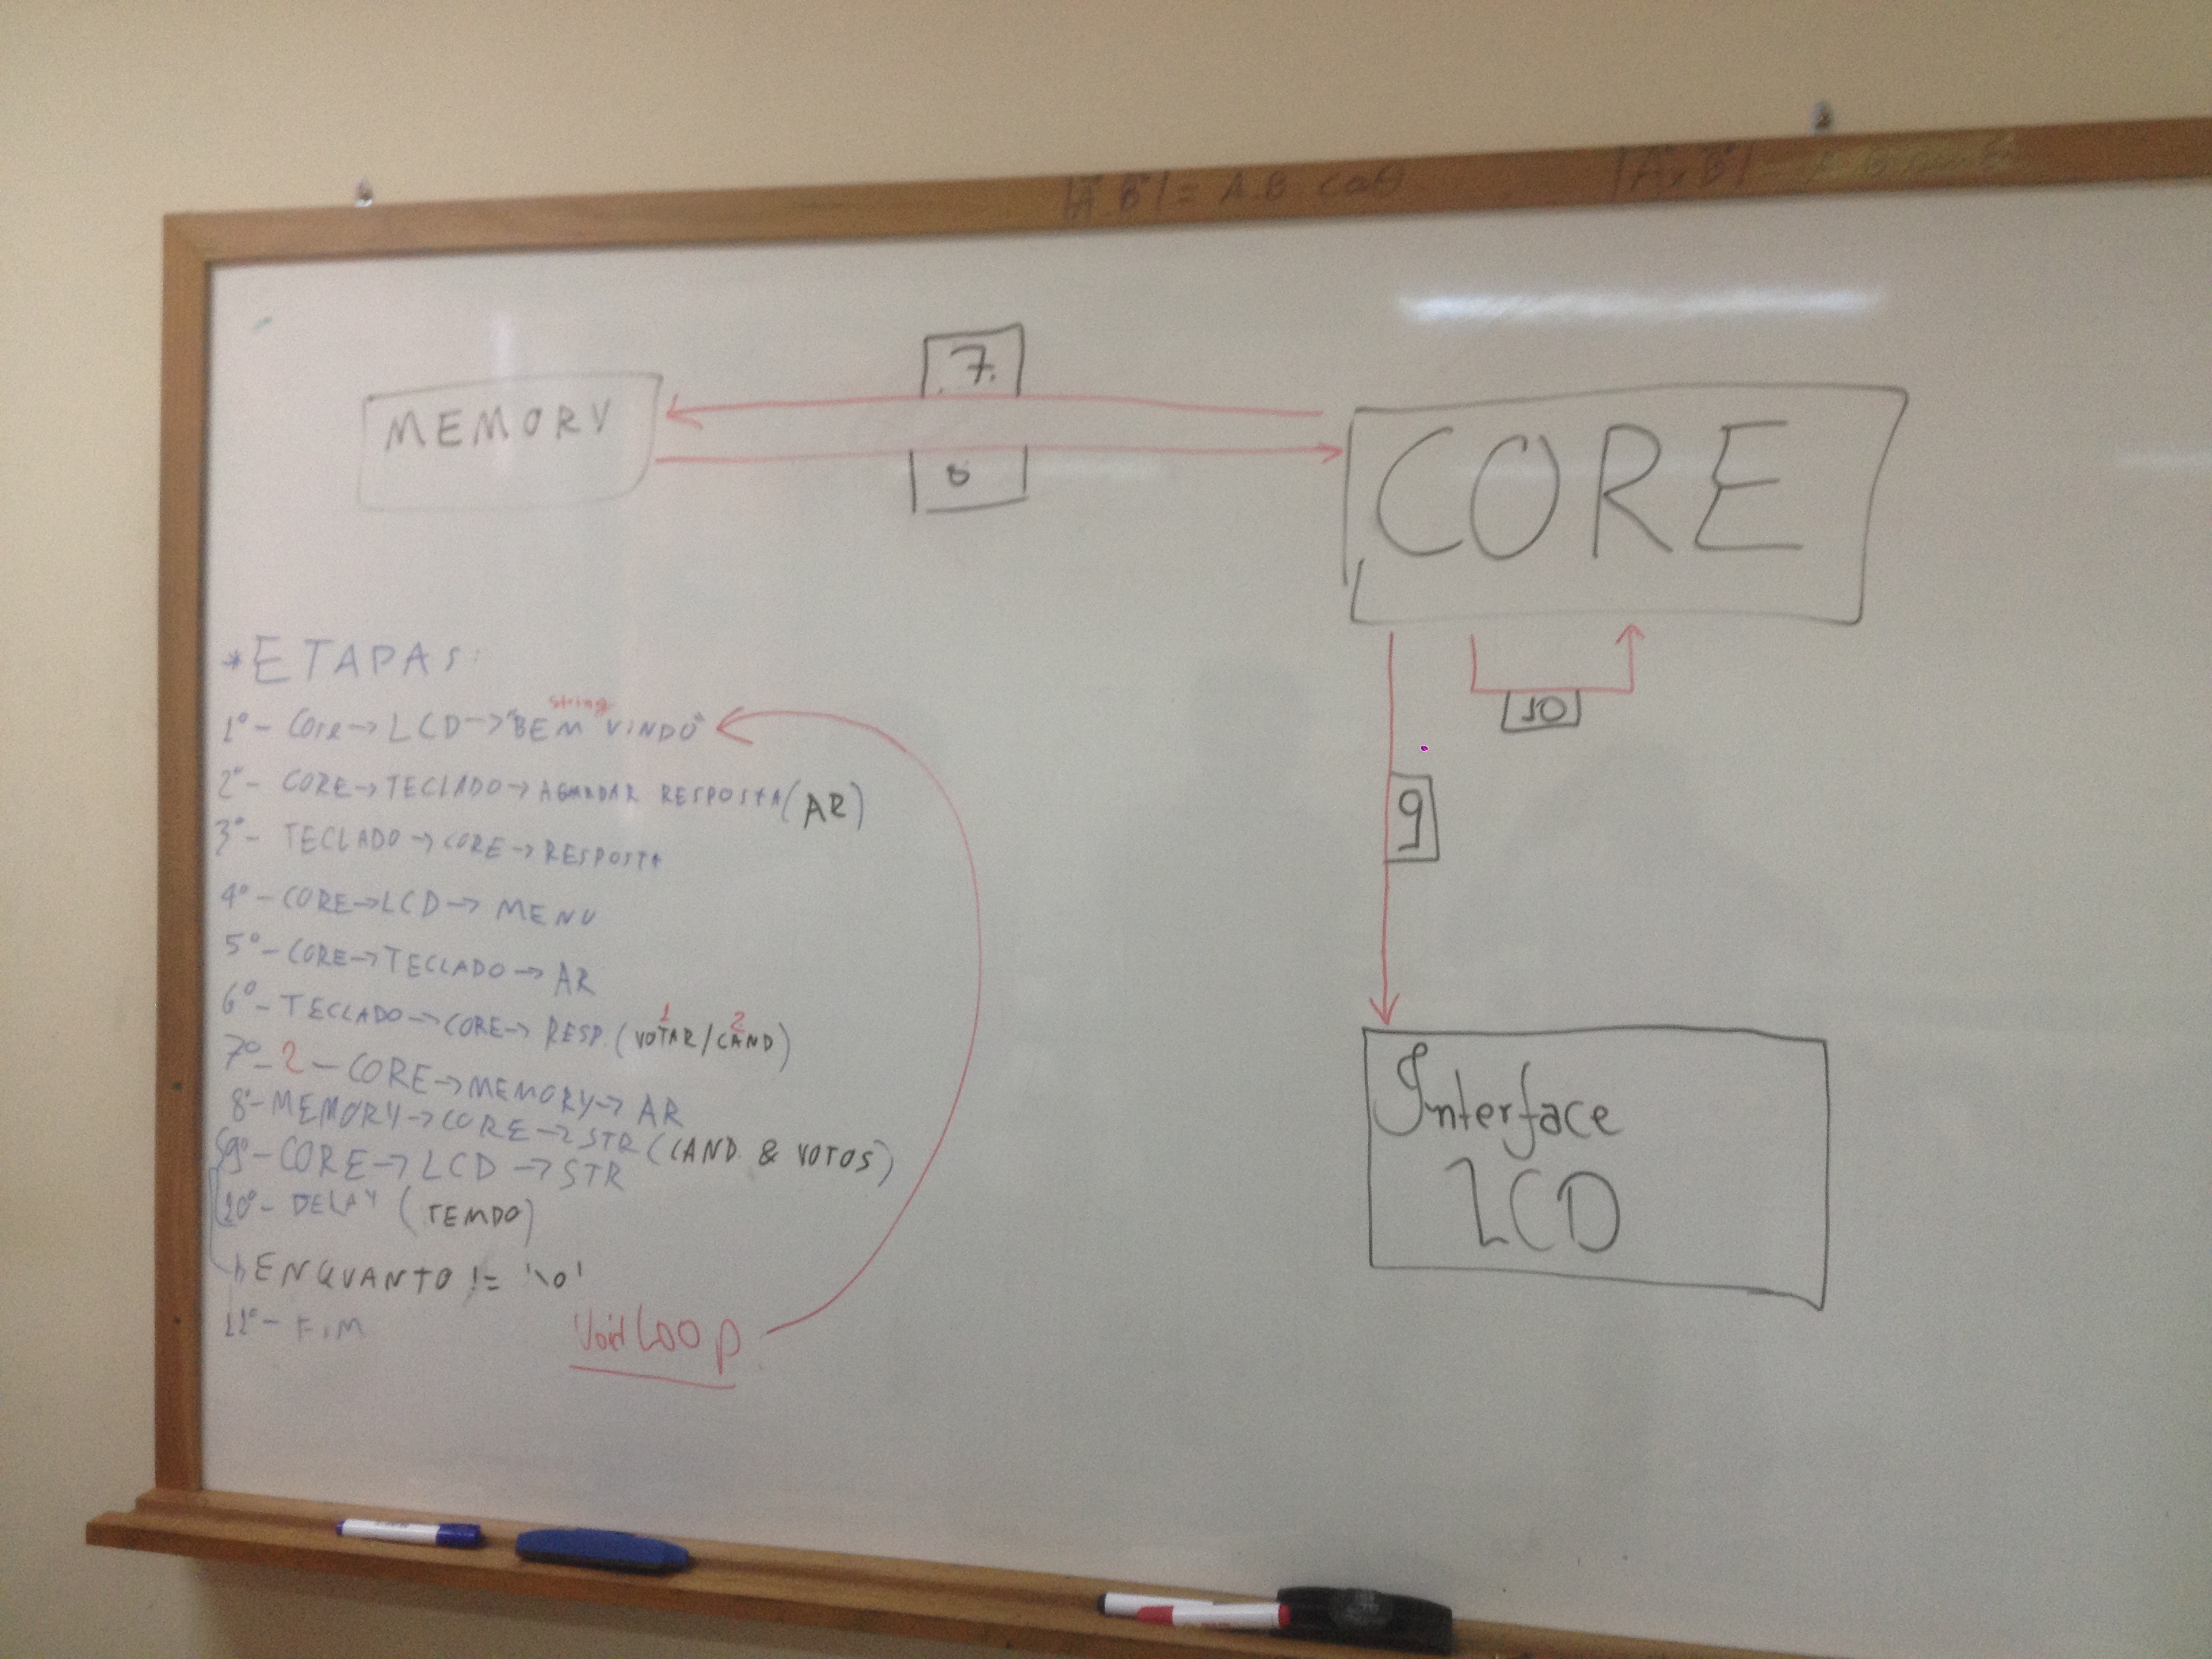 |A.B| = A.B cosθ
7
MEMORY
8
CORE
10
9
Interface
LCD
*ETAPAS:
string
1º- Core→LCD→"BEM VINDO"
2º- CORE→TECLADO→AGUARDAR RESPOSTA (AR)
3º- TECLADO→CORE→RESPOSTA
4º-CORE→LCD→MENU
5º-CORE→TECLADO→AR
1 2
6º-TECLADO→CORE→RESP. (VOTAR/CAND)
7º-2-CORE→MEMORY→AR
8º-MEMORY→CORE→STR (CAND. & VOTOS)
9º-CORE→LCD→STR
10º- DELAY (TEMPO)
ENQUANTO != '\0'
11º- FIM
Void LOOP